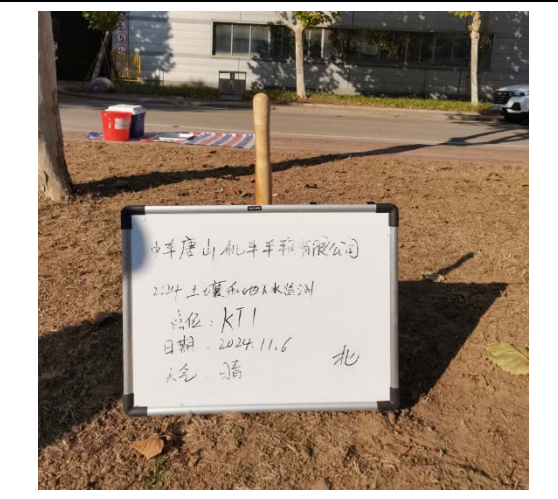 中车唐山机车车辆有限公司
2024土壤和地下水监测
点位:KT1
日期:2024.11.6
天气:晴
北